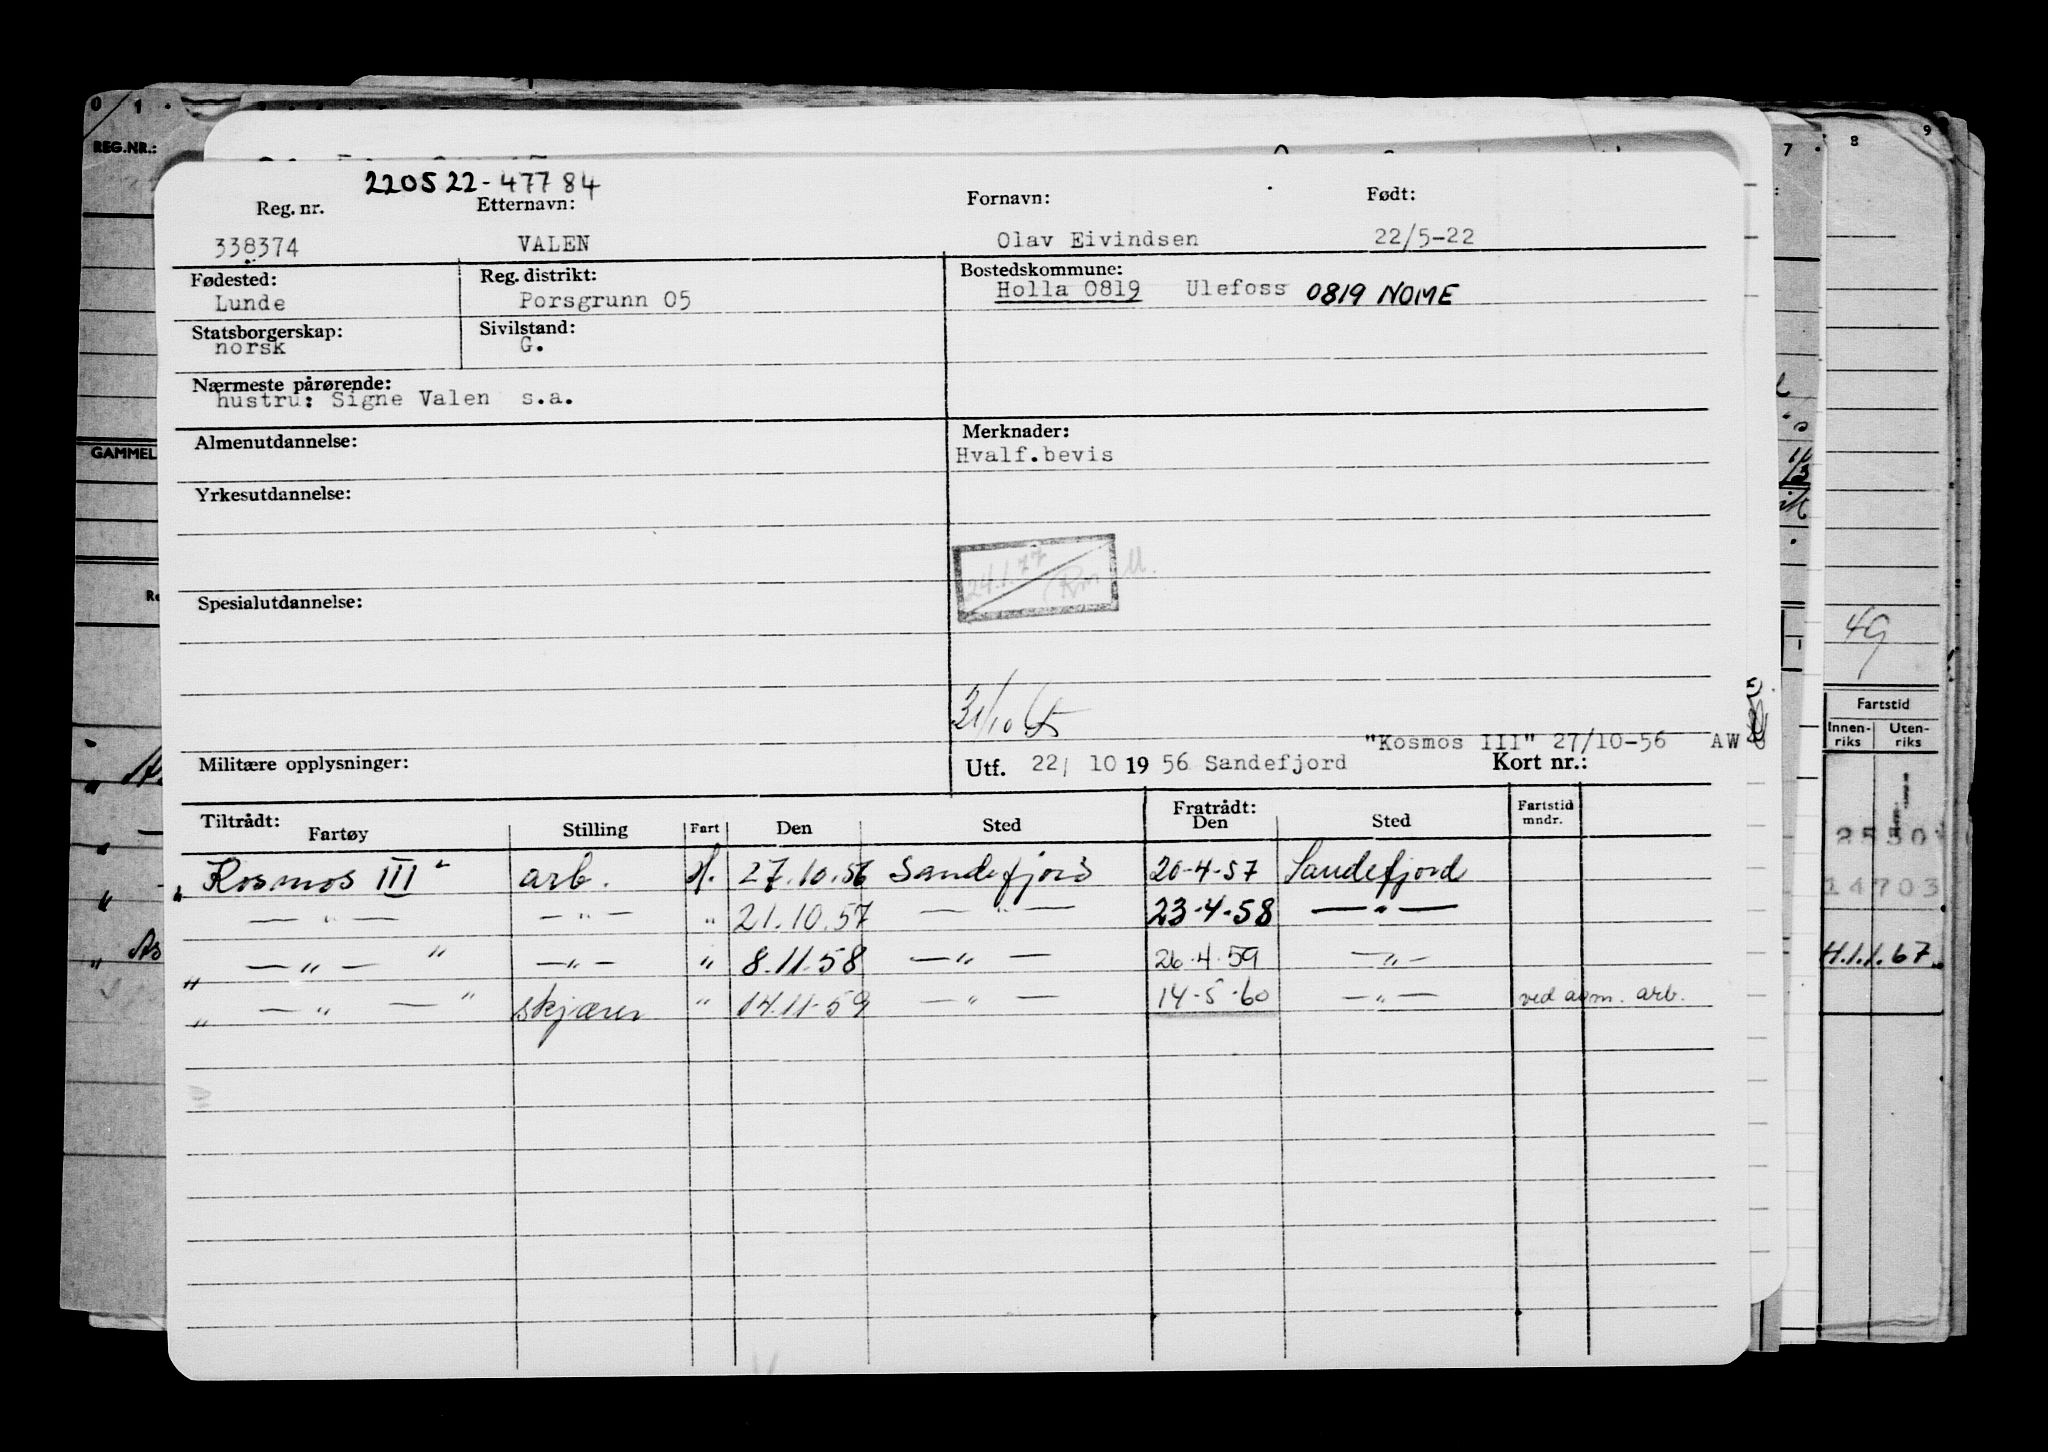 0 1 . 7 . 8 9
REG.NR.:
220522-47784
Reg. nr. Etternavn: Fornavn: Født:
338374 VALEN Olav Eivindsen 22/5-22
Fødested: Reg. distrikt: Bostedskommune:
Lunde Porsgrunn 05 Holla 0819 Ulefoss 0819 NOME
Statsborgerskap: Sivilstand:
norsk G.
Nærmeste pårørende:
hustru: Signe Valen s.a.
Almenutdannelse: Merknader:
GAMMEL Hvalf.bevis
Yrkesutdannelse:
24.1.77
Spesialutdannelse:
49
Fartstid
Innen-riks Uten-riks
"Kosmos III" 27/10-56 AW
Militære opplysninger: Utf. 22/ 10 19 56 Sandefjord Kort nr.:
Tiltrådt: Fratrådt: Fartstid mndr.
Fartøy Stilling Fart Den Sted Den Sted
2550
"Kosmos III" arb. H. 27.10.56 Sandefjord 20-4-57 Sandefjord
14703
— " — — " — " 21.10.57 — " — 23-4-58 — " —
" — " — " — " — " 8.11.58 — " — 26-4-59 — " —
H.1.1.67.
" — " — " skjærer " 14.11-59 — " — 14-5-60 — " — ved avm. arb.